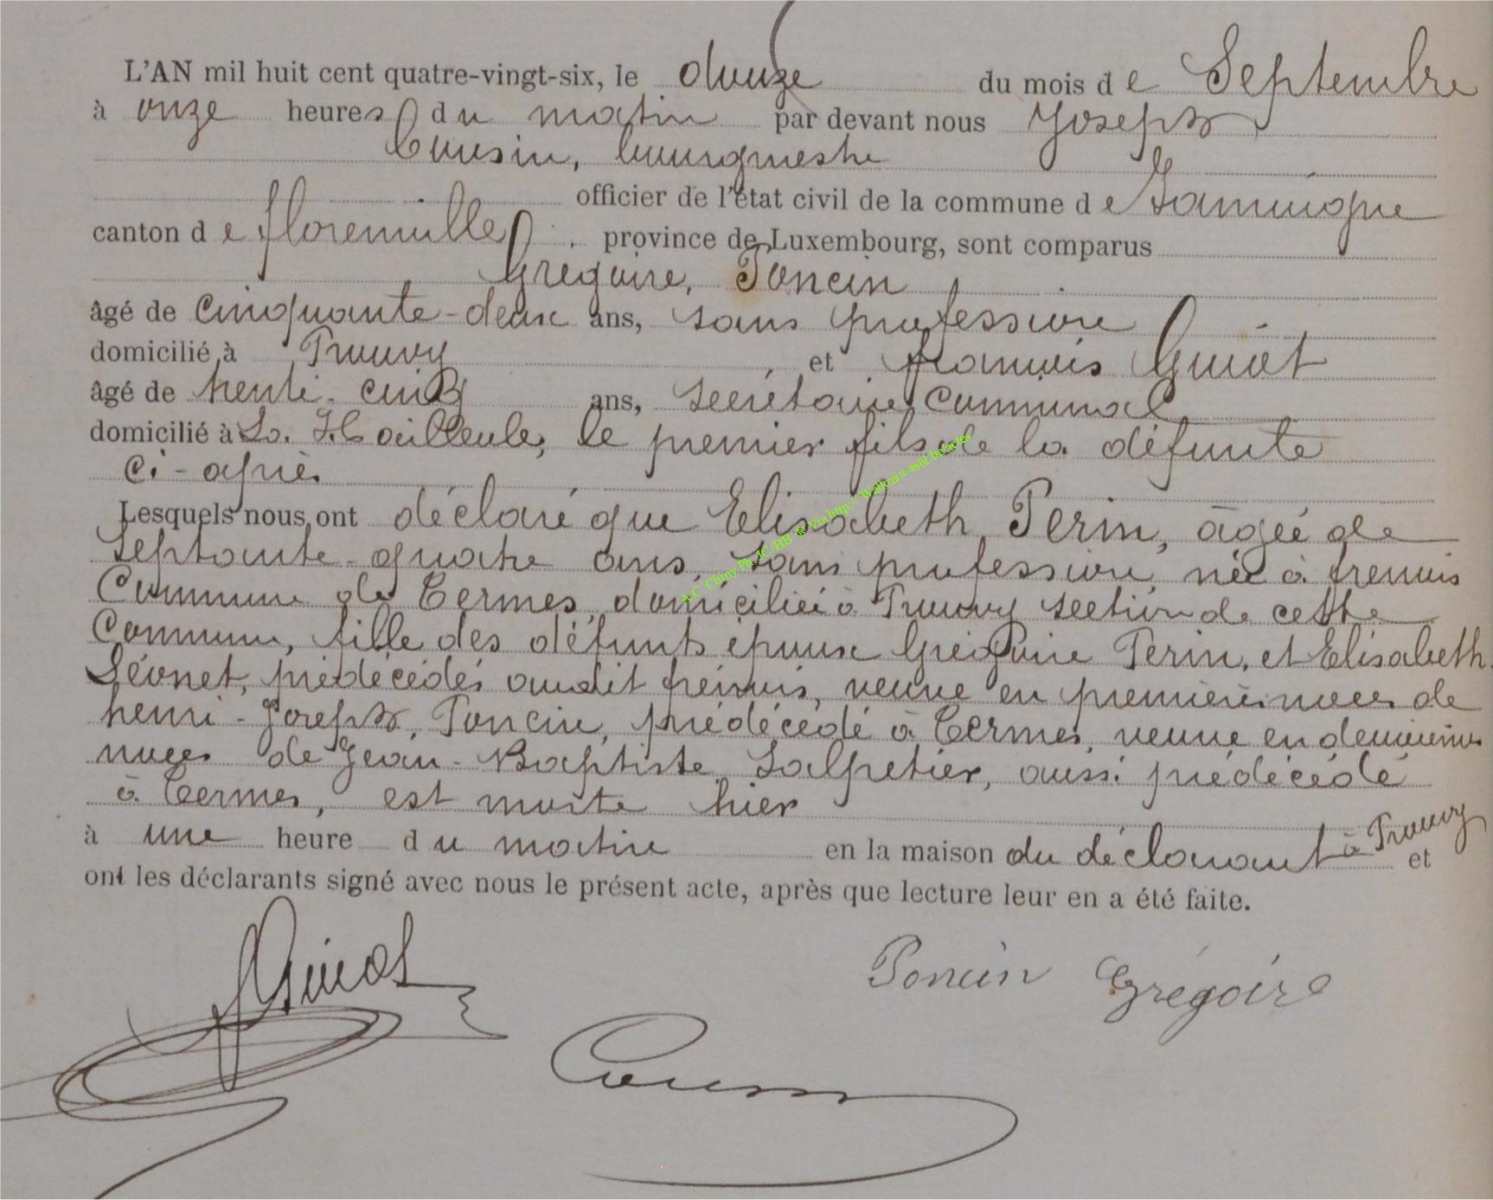 L'AN mil huit cent quatre-vingt-six, le douze du mois de Septembre
à onze heures du matin par devant nous Joseph
Cousin, bourgmestre
officier de l'état civil de la commune de Jamoigne
canton de florenville, province de Luxembourg, sont comparus
Grégoire, Poncin
âgé de Cinquante-deux ans, sans profession
domicilié à Prouvy et françois Guiot
âgé de trente-cinq ans, secrétaire Communal
domicilié à La Hailleule, le premier fils de la défunte
Ci-après
Lesquels nous ont déclaré que Elisabeth Perin, âgée de
Septante-quatre ans, sans profession, née à frenois
Commune de Termes, domiciliée à Prouvy section de cette
Commune, fille des défunts époux Grégoire Perin, et Elisabeth
prédécédés audit frénois, veuve en premières noces de
henri-Joseph, Poncin, prédécédé à Termes, veuve en deuxièmes
noces de Jean-Baptiste Salpetier, aussi prédécédé
à Termes, est morte hier
à une heure du matin en la maison du déclarant à Prouvy et
ont les déclarants signé avec nous le présent acte, après que lecture leur en a été faite.
Guiot
Poncin Grégoire
Cousin